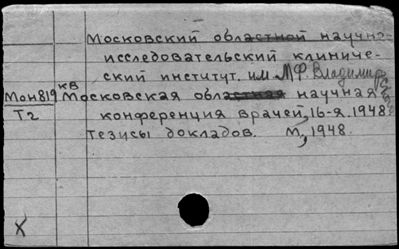 Московский областной научно-
исследовательский клиниче-
ский институт им. М.Ф. Владимирского
кв
Мон819 Московская областная научная
Т2 конференция врачей, 16-я. 1948.
Тезисы докладов. М., 1948.
X